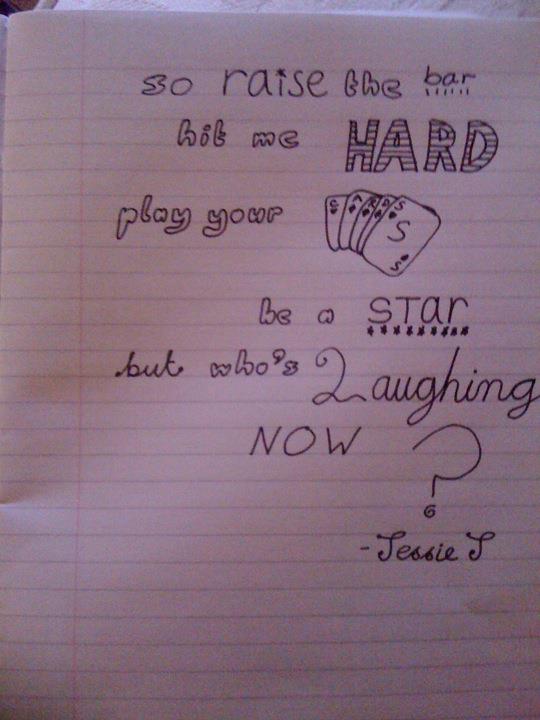 so raise the bar
hit me HARD
play your CARDS S S
be a STar
but who's Laughing
NOW ?
- Jessie J